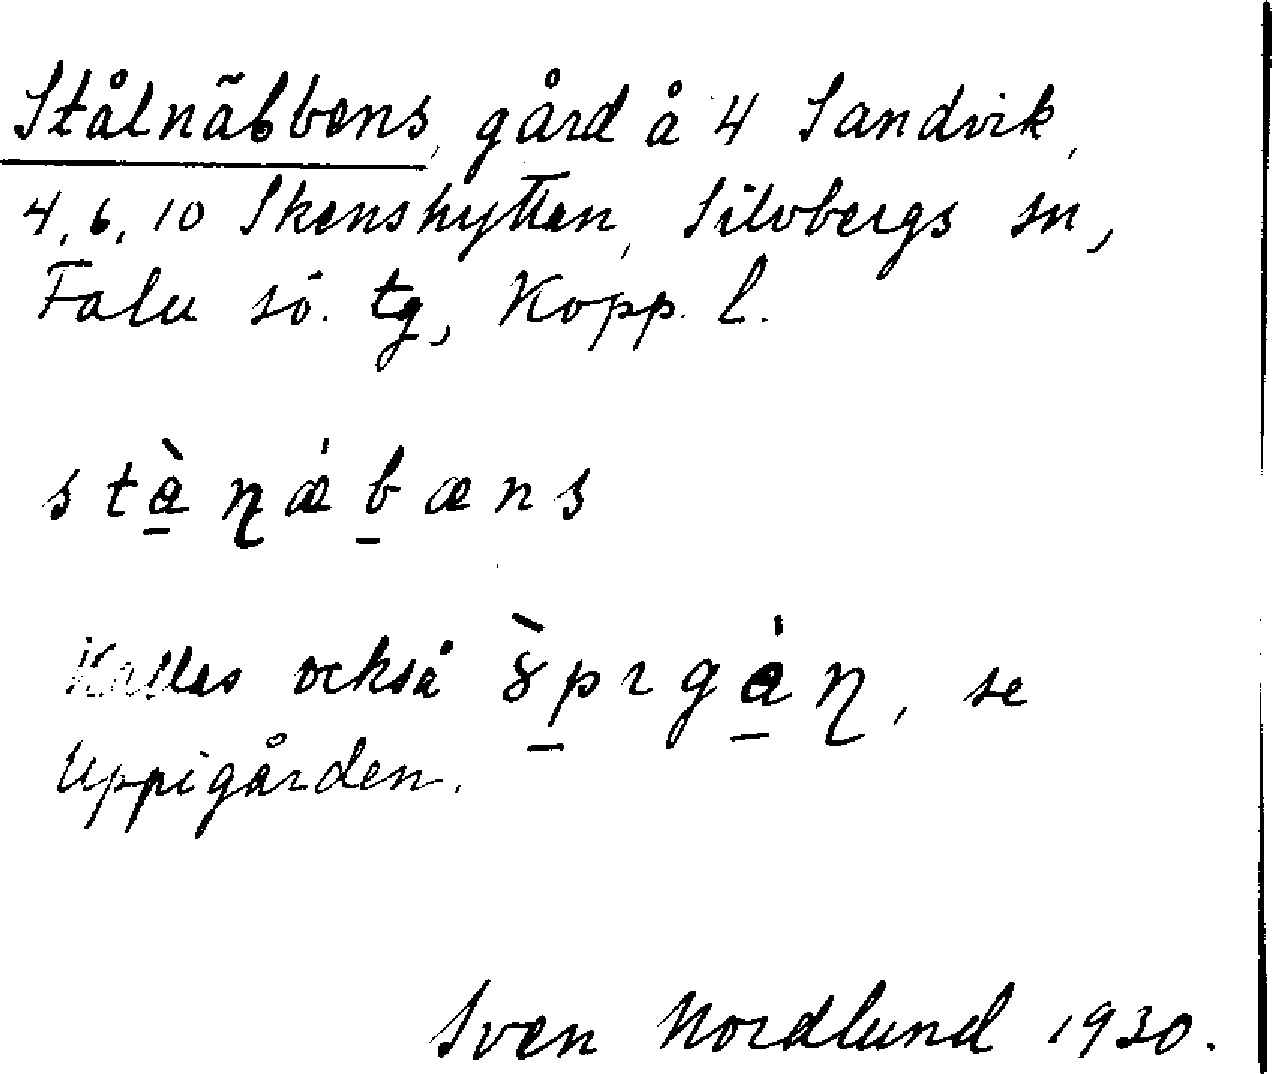 Stålnäbbens, gård å 4 Sandvik,
4, 6, 10 Skenshyttan, Silvbergs sn,
Falu sö. tg, Kopp. l.
stа̱̀ɳǽḇæns
Kallas också ɤ̱̀pɪgá̱ɳ, se
Uppigården.
Sven Nordlund 1930.